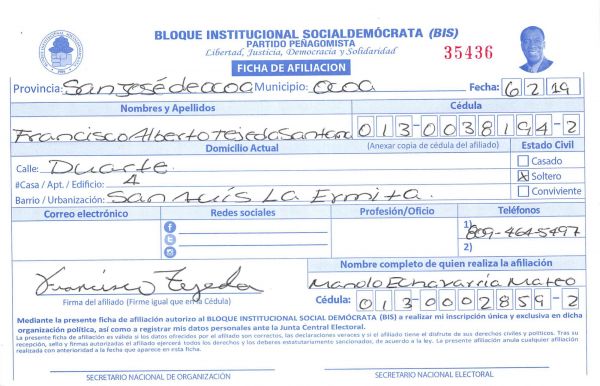 BLOQUE INSTITUCIONAL SOCIALDEMÓCRATA (BIS)
PARTIDO PEÑAGOMISTA
Libertad, Justicia, Democracia y Solidaridad
35436
FICHA DE AFILIACION
Provincia: San José de ocoa Municipio: Ocoa Fecha: 6 2 19
Nombres y Apellidos Cédula
Francisco Alberto Tejeda Santana 013-0038194-2
Domicilio Actual (Anexar copia de cédula del afiliado) Estado Civil
Calle: Duarte Casado
#Casa / Apt. / Edificio: 4 Soltero
Barrio / Urbanización: San Luís La Ermita. Conviviente
Correo electrónico Redes sociales Profesión/Oficio Teléfonos
1) 809-464-5497
2)
Nombre completo de quien realiza la afiliación
Francisco Tejeda Manolo Echavarría Mateo
Firma del afiliado (Firme igual que en la Cédula) Cédula: 013-0002859-2
Mediante la presente ficha de afiliación autorizo al BLOQUE INSTITUCIONAL SOCIAL DEMÓCRATA (BIS) a realizar mi inscripción única y exclusiva en dicha
organización política, así como a registrar mis datos personales ante la Junta Central Electoral.
La presente ficha de afiliación es valida si los datos ofrecidos por el afiliado son correctos, las declaraciones veraces y si el afiliado tiene el disfrute de sus derechos civiles y políticos. Tras su
recepción, sello y firmas autorizadas el afiliado ejercerá todos los derechos y los deberes estatutariamente sancionados, de acuerdo a la ley. La presente afiliación anula cualquier afiliación
realizada con anterioridad a la fecha que aparece en esta ficha.
SECRETARIO NACIONAL DE ORGANIZACIÓN SECRETARIO NACIONAL ELECTORAL